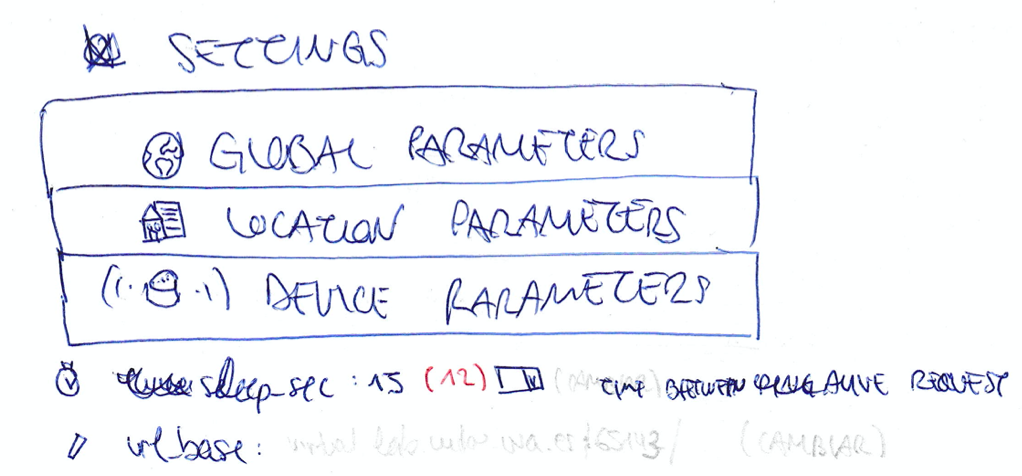 SETTINGS
GLOBAL PARAMETERS
LOCATION PARAMETERS
DEVICE PARAMETERS
sleep-sec : 15 (12) (CAMBIAR) TIME BETWEEN PING ALIVE REQUEST
url_base: (CAMBIAR)